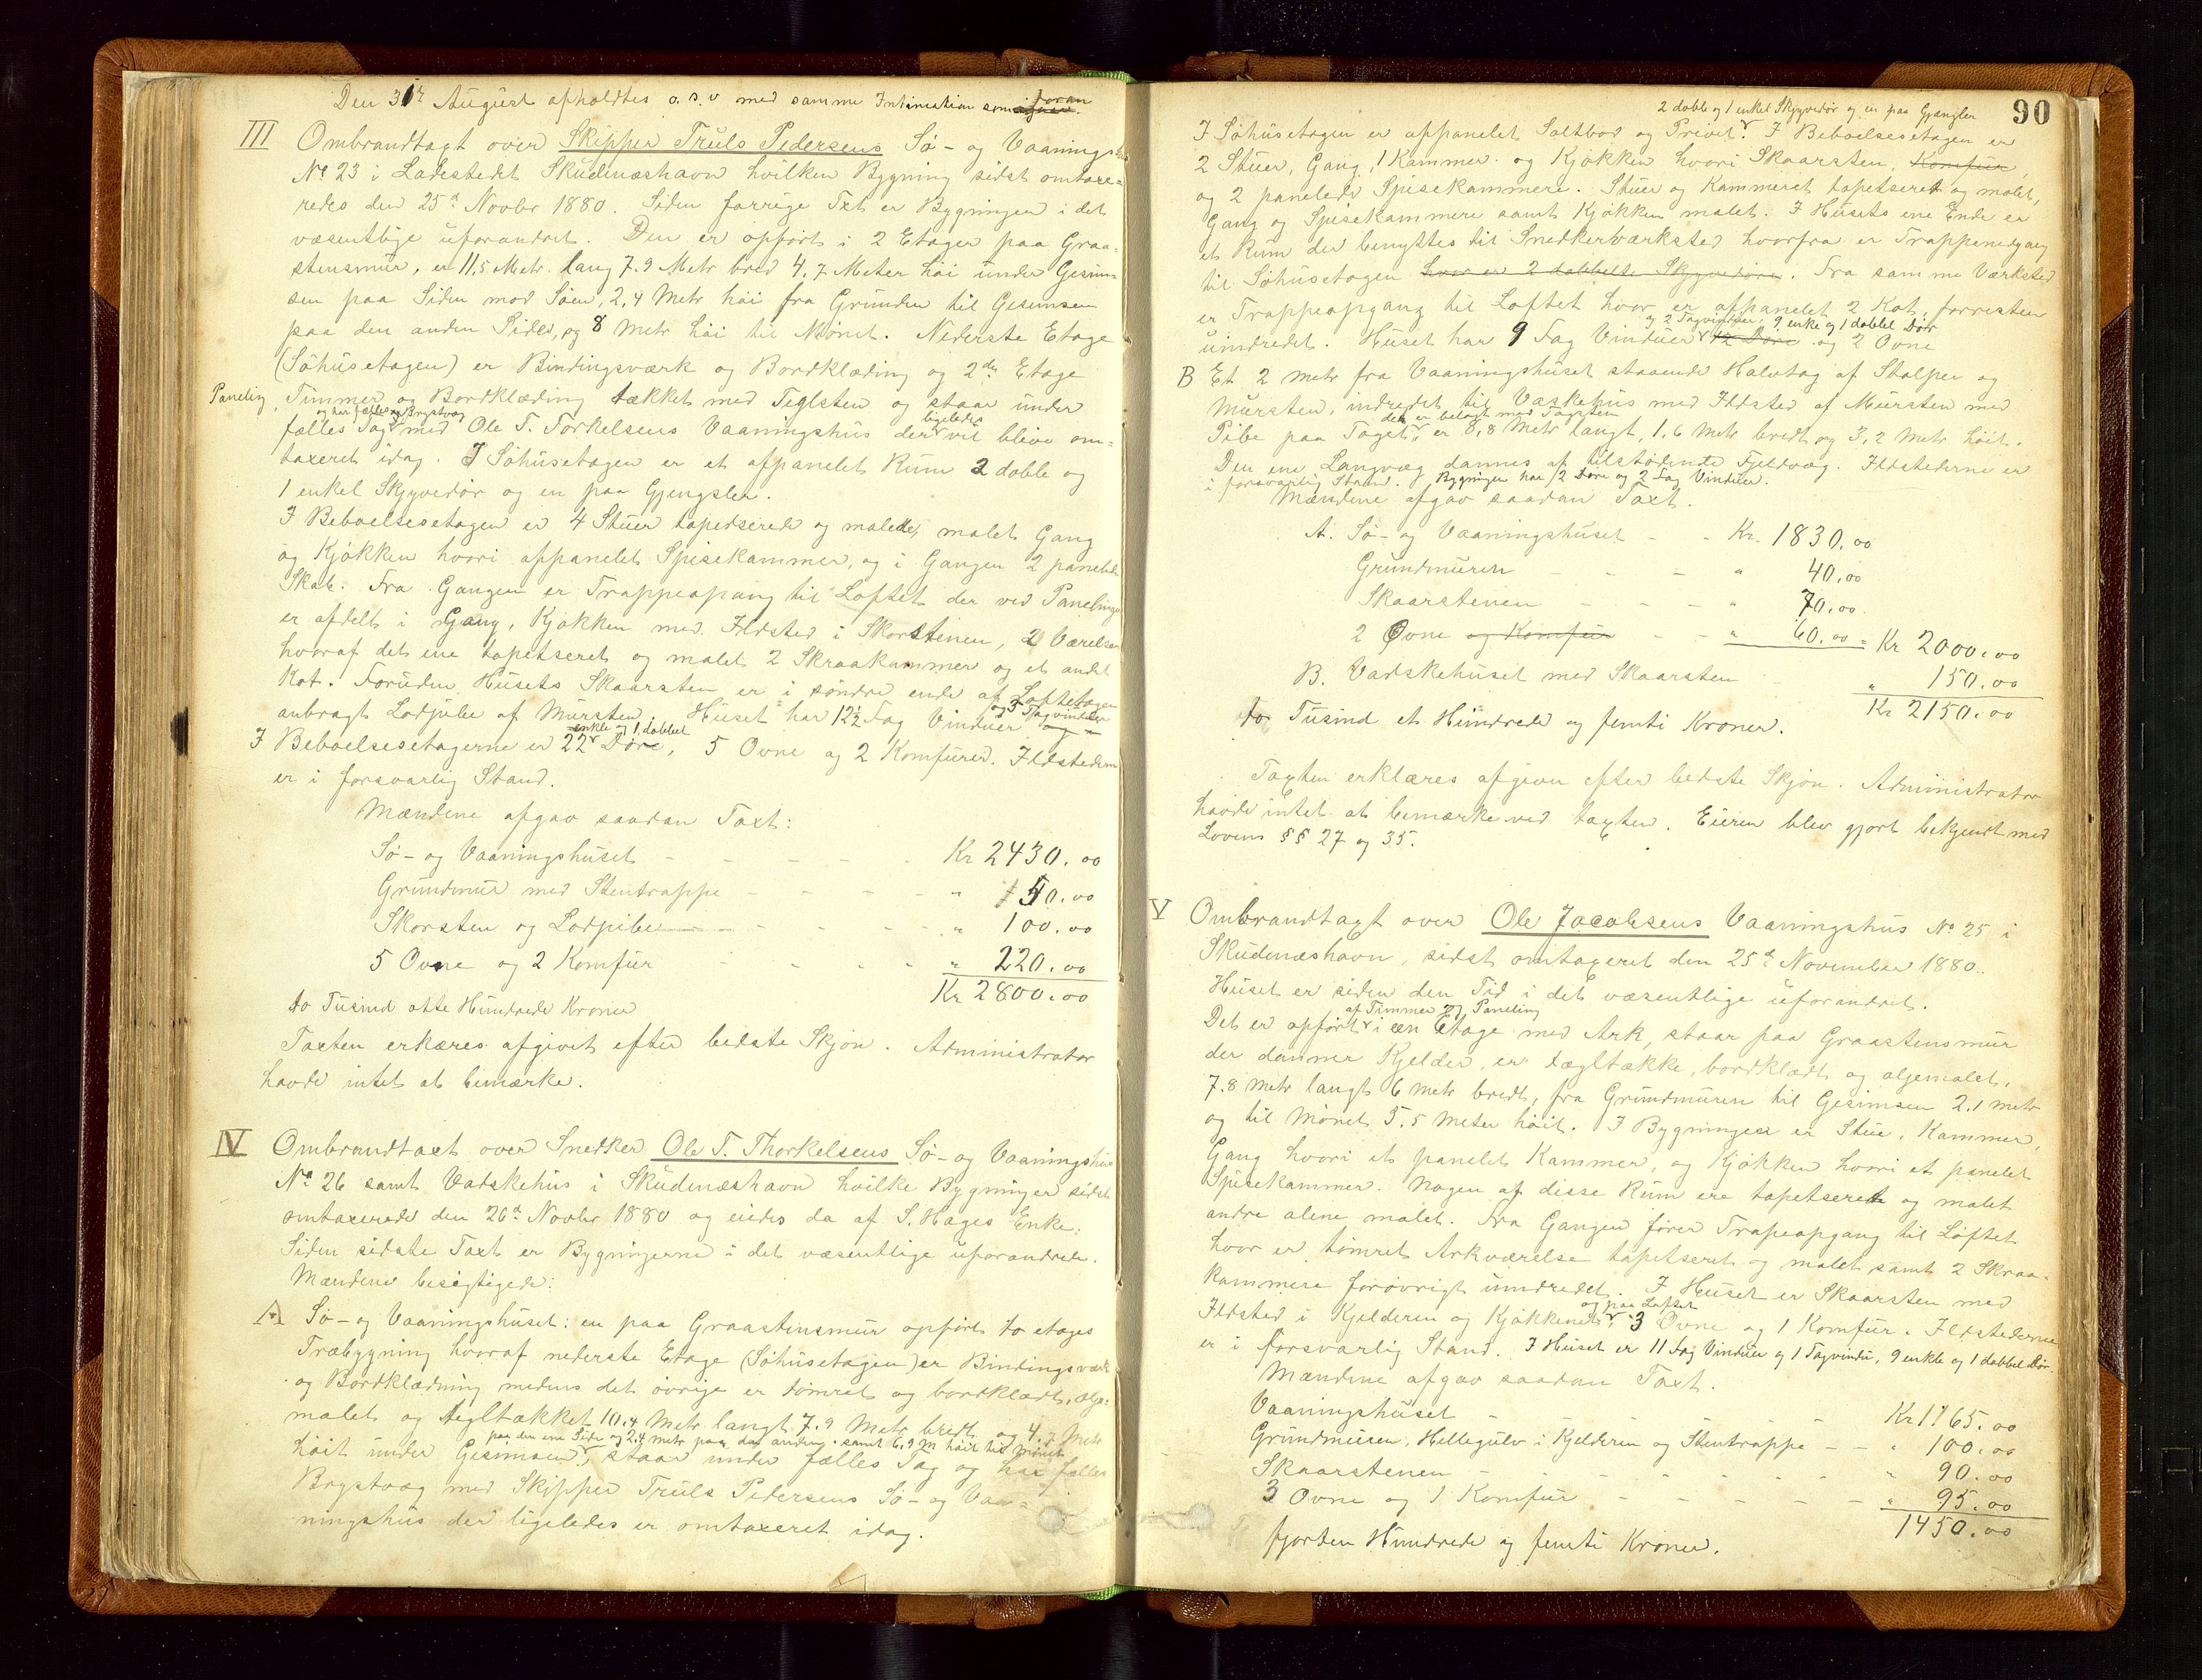 Den 31te August afholdtes o. s. v med samme Intimation som foran.
III Ombrandtagt over Skipper Truls Pedersens Sø- og Vaaningshus
No 23 i Ladestedet Skudenæshavn hvilken Bygning sidst omtaxe=
redes den 25de Novbr 1880. Siden forrige Txt er Bygningen i det
væsentlige uforandret. Den er opført i 2 Etager paa Graa=
stensmur, er 11,5 Metr. lang 7.9 Metr bred 4.7 Meter høi under Gesim=
sen paa Siden mod Søen, 2,4 Metr høi fra Grunden til Gesimsen
paa den anden Side, og 8 Metr høi til Mønet. Nederste Etage
(Søhusetagen) er Bindingsværk og Bordklæding og 2den Etage
Paneling, Timmer og Bordklæding tækket med Teglsten og staar under
og har fælles Brystvæg ligeledes
fælles Tag med Ole T. Torkelsens Vaaningshus der vil blive om=
taxeret idag. I Søhusetagen er et afpanelet Rum 2 doble og
1 enkel Skyvedør og en paa Gjengsler.
I Beboelsesetagen er 4 Stuer tapedserede og malede, malet Gang
og Kjøkken hvori afpanelet Spisekammer, og i Gangen 2 panelede
Skab. Fra Gangen er Trappeopgang til Loftet der ved Panelinger
er afdelt i Gang, Kjøkken med Ildsted i Skorstenen, 2 Værelser
hvoraf det ene tapetseret og malet 2 Skraakammer og et andet
Kot. Foruden Husets Skaarsten er i søndre ende af Loftetagen
anbragt Lodpibe af Mursten. Huset har 12½ Fag Vinduer og 3 Tagvinduer
enkle og 1 dobbel
I Beboelsesetagerne er 22 Døre, 5 Ovne og 2 Komfurer. Ildstederne
er i forsvarlig Stand.
Mændene afgav saadan Taxt:
Sø- og Vaaningshuset - - - - - Kr 2430.00
Grundmur med Stentrappe - - - - " 50.00
Skorsten og Lodpiben - - - - " 100.00
5 Ovne og 2 Komfur - - - - " 220.00
to Tusind otte Hundrede Kroner Kr 2800.00
Taxten erkæres afgivet efter bedste Skjøn. Administrator
havde intet at bemærke.
IV Ombrandtaxt over Snedker Ole T. Thorkelsens Sø- og Vaaningshus
No 26 samt Vadskehus i Skudenæshavn hvilke Bygninger sidst
omtaxerede den 26de Novbr 1880 og eiedes da af S. Hages Enke.
Siden sidste Taxt er Bygningerne i det væsentlige uforandrede.
Mændene besigtigede:
A Sø- og Vaaningshuset: en paa Graastensmur opført to etages
Træbygning hvoraf nederste Etage (Søhusetagen) er Bindingsværk
og Bordklædning medens det øvrige er tømret og bordklædt, olje=
malet og tegltækket 10.4 Metr langt 7.9 Metr bredt og 4.7 Metr
paa den ene Side og 2.4 metr paa den anden samt 6.9 M høit til Mønet
høit under Gesimsen, staar under fælles Tag og har fælles
Brystvæg med Skipper Truls Pedersens Sø- og Vaa=
ningshus der ligeledes er omtaxeret idag.
90
2 doble og 1 enkel Skyvedør og en paa Gjangler
I Søhusetagen er afpanelet Saltbod og Privet. I Beboelsesetagen er
2 Stuer, Gang, 1 Kammer og Kjøkken hvori Skaarsten, Komfur,
og 2 panelede Spisekammere. Stuer og Kammeret tapetseret og malet,
Gang og Spisekammere samt Kjøkken malet. I Husets ene Ende er
et Rum der benyttes til Snedkerværksted hvorfra er Trappenedgang
til Søhusetagen hvor er 2 dobbelte Skyvedøre. Fra samme Værksted
er Trappeopgang til Loftet hvor er afpanelet 2 Kot, forresten
og 2 Tagvinduer, 9 enke og 1 dobbel Dør
uindredet. Huset har 9 Fag Vinduer 12 Døre og 2 Ovne
B Et 2 metr fra Vaaningshuset staaende Halvtag af Stolper og
Mursten, indredet til Vaskehus med Ildsted af Mursten med
det er belagt med Tagsten
Pibe paa Taget, er 8,8 Metr langt, 1.6 Metr bredt og 3,2 Metr høit.
Den ene Langvæg dannes af tilstødende Fjeldvæg. Ildstederne er
i forsvarlig Stand. Bygningen har 2 Døre og 2 Fag Vinduer.
Mændene afgav saadan Taxt.
A. Sø- og Vaaningshuset - - Kr. 1830.00
Grundmuren - - - " 40.00
Skaarstenen - - - " 70.00
2 Ovne og Komfur - - " 60.00 = Kr 2000.00
B. Vadskehuset med Skaarsten - " 150.00
to Tusind et Hundrede og femti Kroner. Kr 2150.00
Taxten erklæres afgiven efter bedste Skjøn. Administrator
havde intet at bemærke ved taxten. Eieren blev gjort bekjendt med
Lovens §§ 27 og 35.
V Ombrandtagt over Ole Jacobsens Vaaningshus No 25 i
Skudenæshavn, sidst omtaxeret den 25de November 1880.
Huset er siden den Tid i det væsentlige uforandret.
af Timmer og Paneling
Det er opført i en Etage med Ark, staar paa Graastensmur
der danner Kjelder, er tægltække, bordklædt og oljemalet,
7.8 metr langt 6 metr bredt, fra Grundmuren til Gesimsen 2.1 metr
og til Mønet 5.5 Meter høit. I Bygningen er Stue, Kammer,
Gang hvori et panelet Kammer, og Kjøkken hvori et panelet
Spisekammer. Nogen af disse Rum ere tapetseret og malet
andre alene malet. Fra Gangen fører Trapeopgang til Loftet
hvor er tømret Arkværelse tapetseret og malet samt 2 Skraa=
kammere forøvrigt uindredet. I Huset er Skaarsten med
og paa Loftet
Ildsted i Kjelderen og Kjøkkenet, 3 Ovne og 1 Komfur. Ildstederne
er i forsvarlig Stand. I Huset er 11 Fag Vinduer og 1 Tagvindu, 9 enkle og 1 dobbel Dør.
Mændene afgav saadan Taxt.
Vaaningshuset - - - - - Kr 1165.00
Grundmuren, Hellegulv i Kjelderen og Stentrappe - - " 100.00
Skaarstenen - - - - - " 90.00
3 Ovne og 1 Komfur - - - - - " 95.00
1450.00
fjorten Hundrede og femti Kroner.